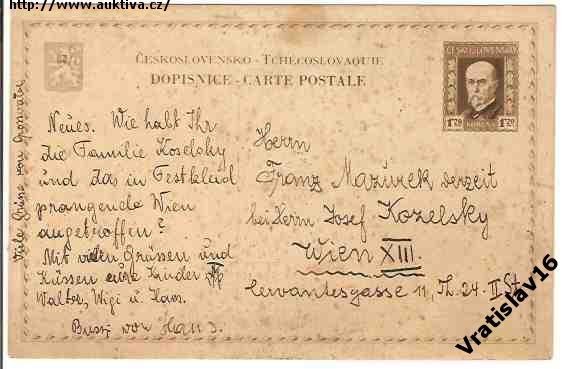 http://www.auktiva.cz/
ČESKOSLOVENSKO - TCHÉCOSLOVAQUIE
DOPISNICE - CARTE POSTALE
ČESKOSLOVENSKO
1.20 KORUNA 1.20
Viele Grüsse von
Neues. Wie habt Ihr
die Familie Koselsky
und das in Festkleid
prangende Wien
angetroffen?
Mit vielen Grüssen und
Küssen eure Kinder
Walter, Wigi u. Hans.
Bussi von Hans.
Herrn
Franz Mazurek derzeit
bei Herrn Josef Kozelsky
Wien XIII.
Cervantesgasse 11, Th. 24. II St.
Vratislav16